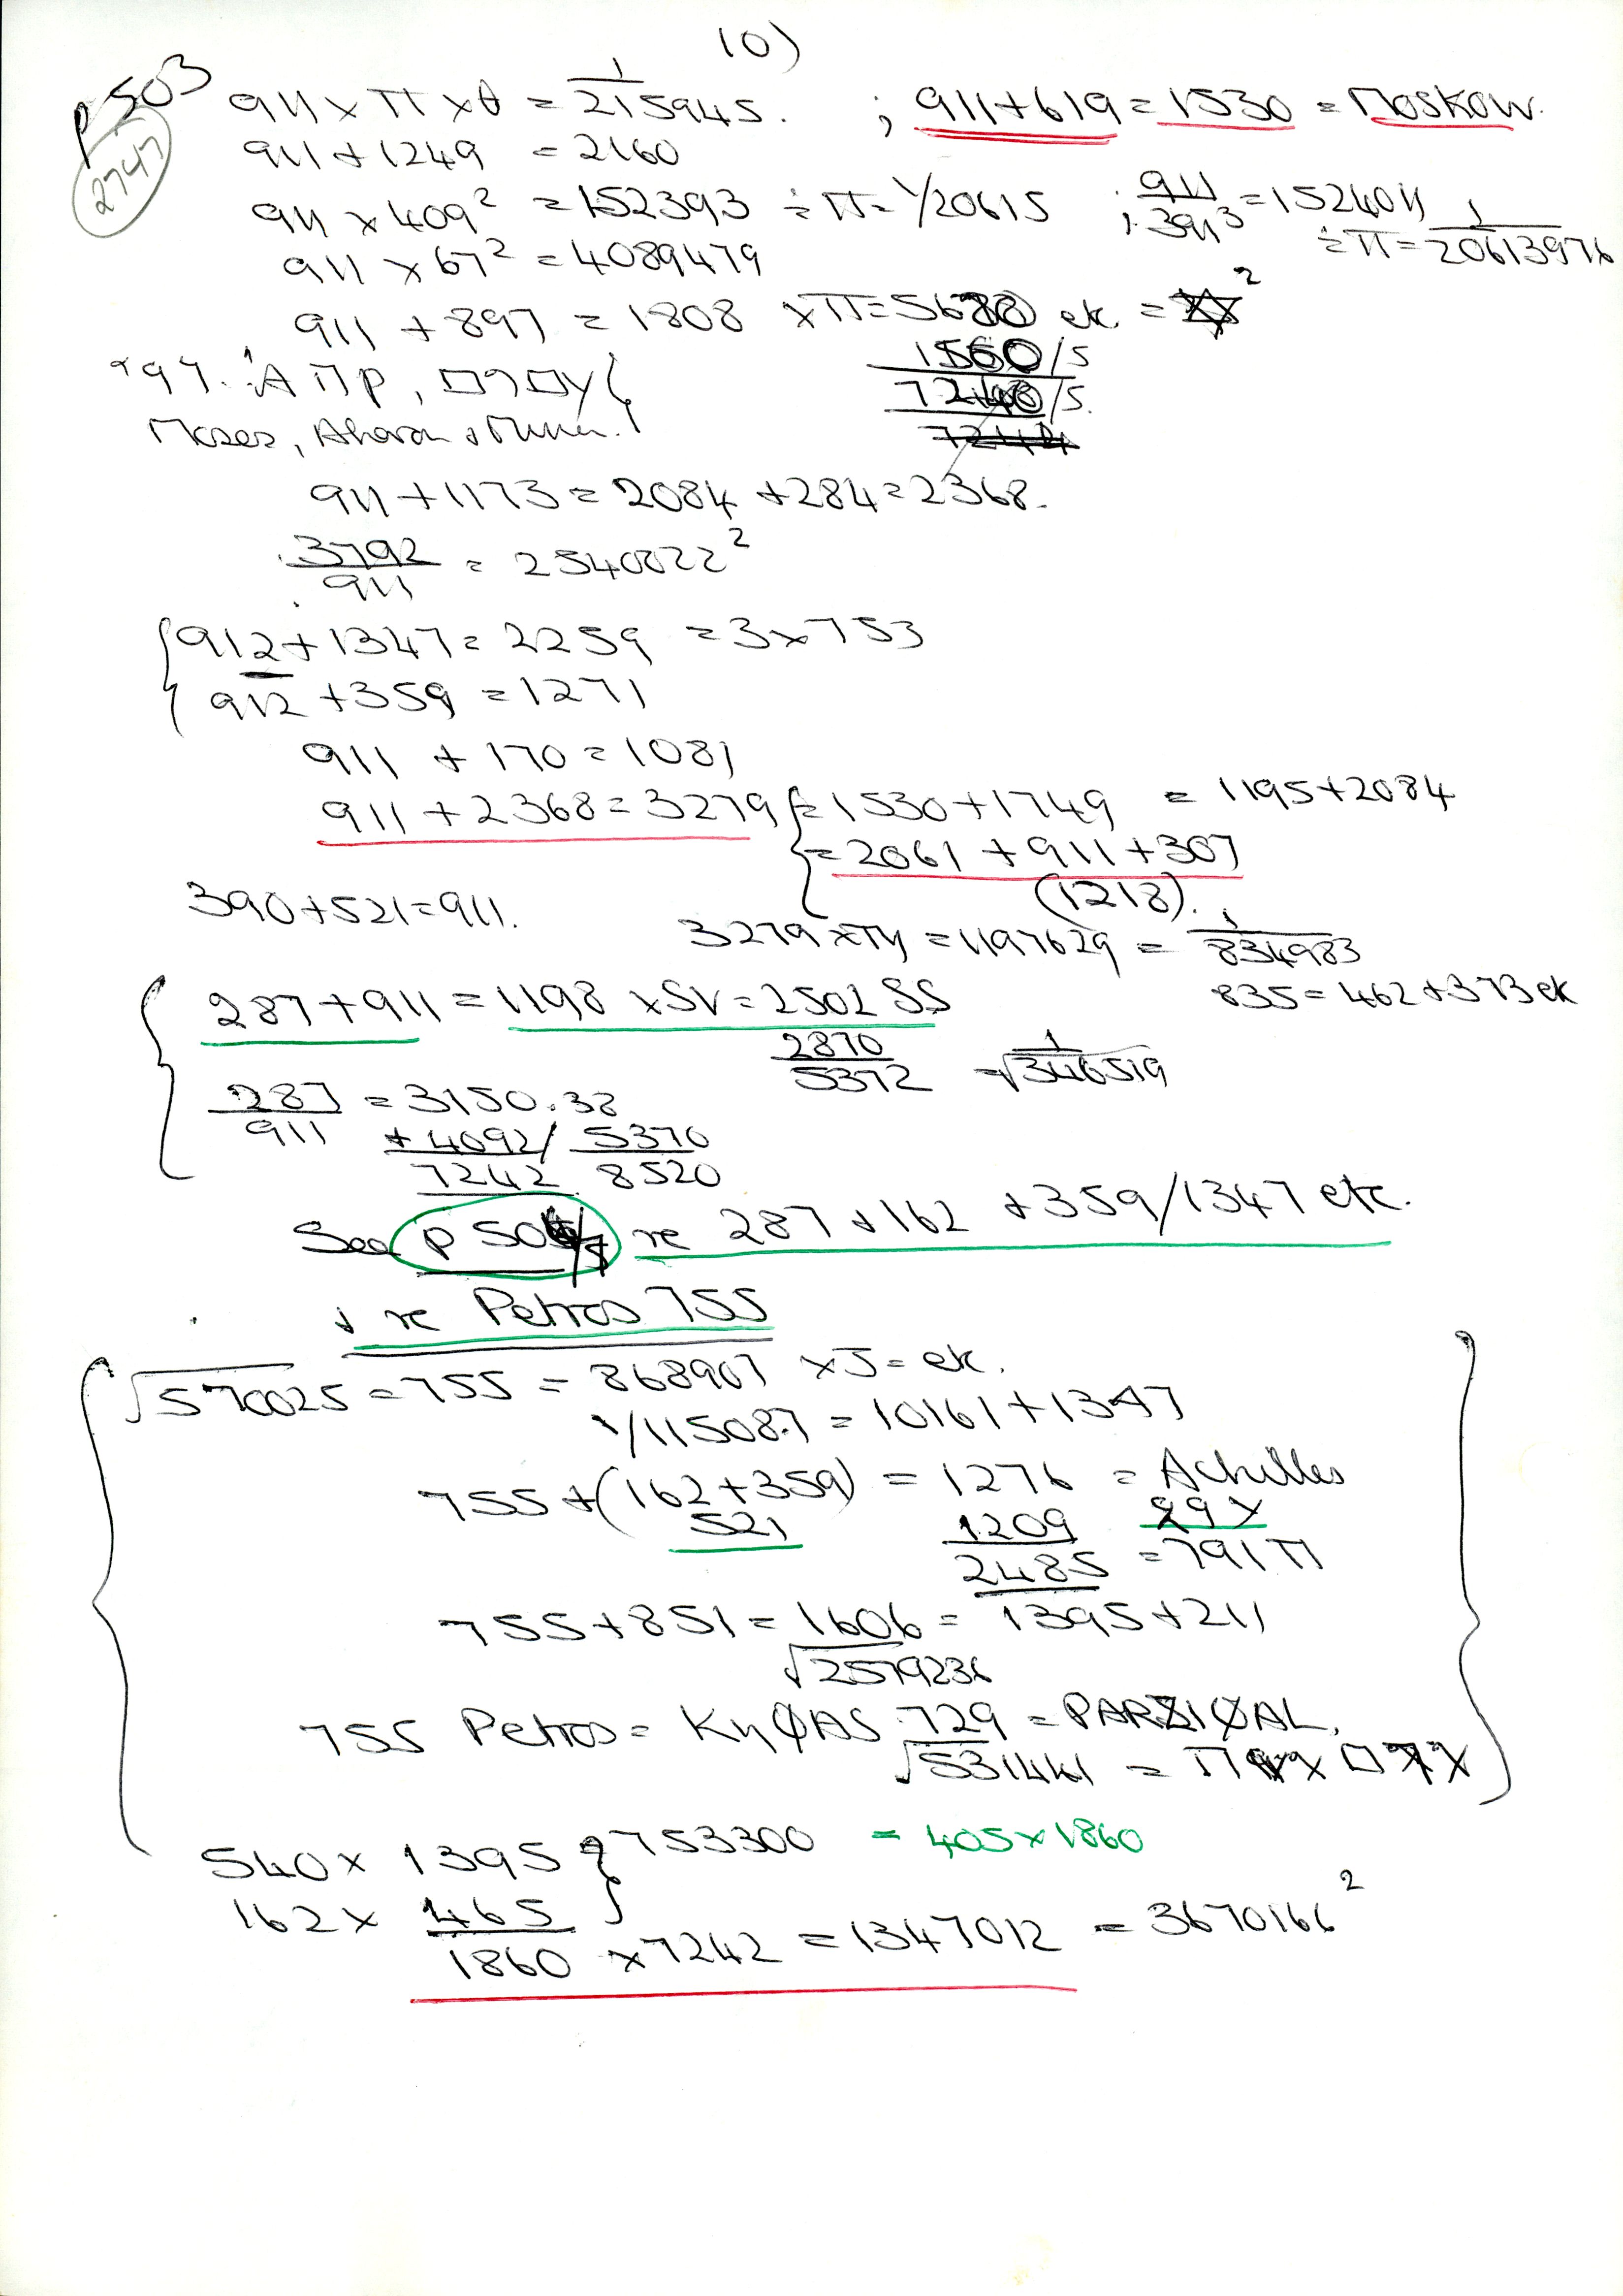 10)
p 503
2747
911 x π x θ = 1/215945. ; 911+619=1530 = Moskow.
911 + 1249 = 2160
911 x 409² = 152393 ÷ π = 1/20615 ; 911/3911³ = 1524011 ÷ π = 1/20613976
911 x 67² = 4089479
911 + 897 = 1808 x π = 5680 etc. =
1560/5
7240/5.
Moses, Aharon +
911 + 1173 = 2084 + 284 = 2368.
3792/911 = 2540022²
912 + 1347 = 2259 = 3 x 753
912 + 359 = 1271
911 + 170 = 1081
911 + 2368 = 3279 = 1530 + 1749 = 1195 + 2084
= 2061 + 911 + 307
(1218).
390 + 521 = 911.
3279 x = 1197629 = 1/834983
835 = 462 + 373 etc
287 + 911 = 1198 x SV = 2502 SS
2870
5372 = 1/√346519
287/911 = 3150.38
+ 4092/ 5370
7242 8520
See p 50 /7 re 287 + 162 + 359/1347 etc.
+ re Petros 755
√570025 = 755 = 868907 x 5 = etc.
1/115087 = 10161 + 1347
755 + (162 + 359) = 1276 = Achilles
521 1209
2485 = 791 π
755 + 851 = 1606 = 1395 + 211
√2579236
755 Petros = KηΦAS 729 = PARZIΦAL.
√531441 =
540 x 1395 } 753300 = 405 x 1860
162 x 465
1860 x 7242 = 1347012 = 3670166²